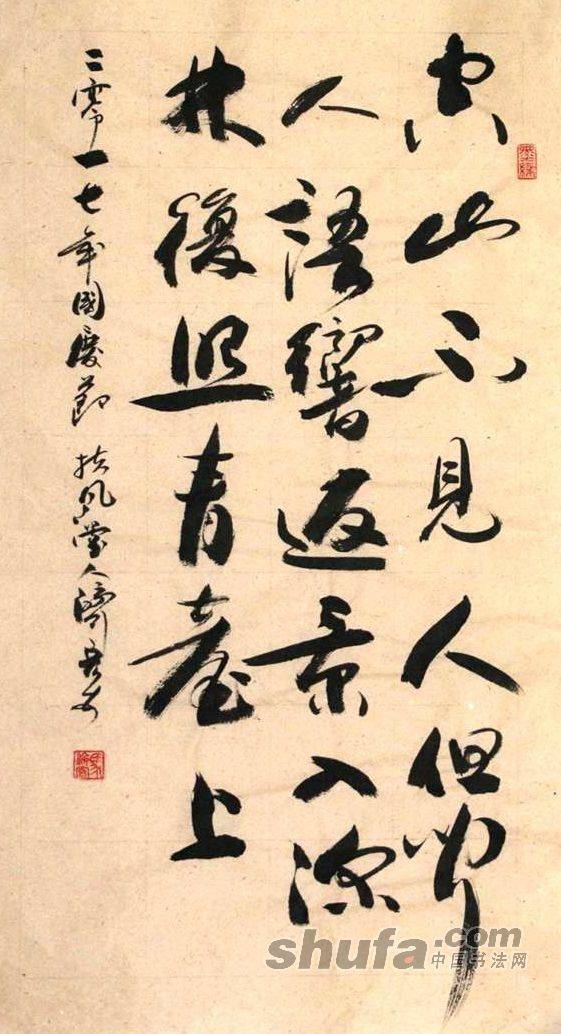 空山不見人但聞
人語響返景入深
林復照青臺上
二零一七年國慶節 扶風堂人濟
shufa.com
中国书法网